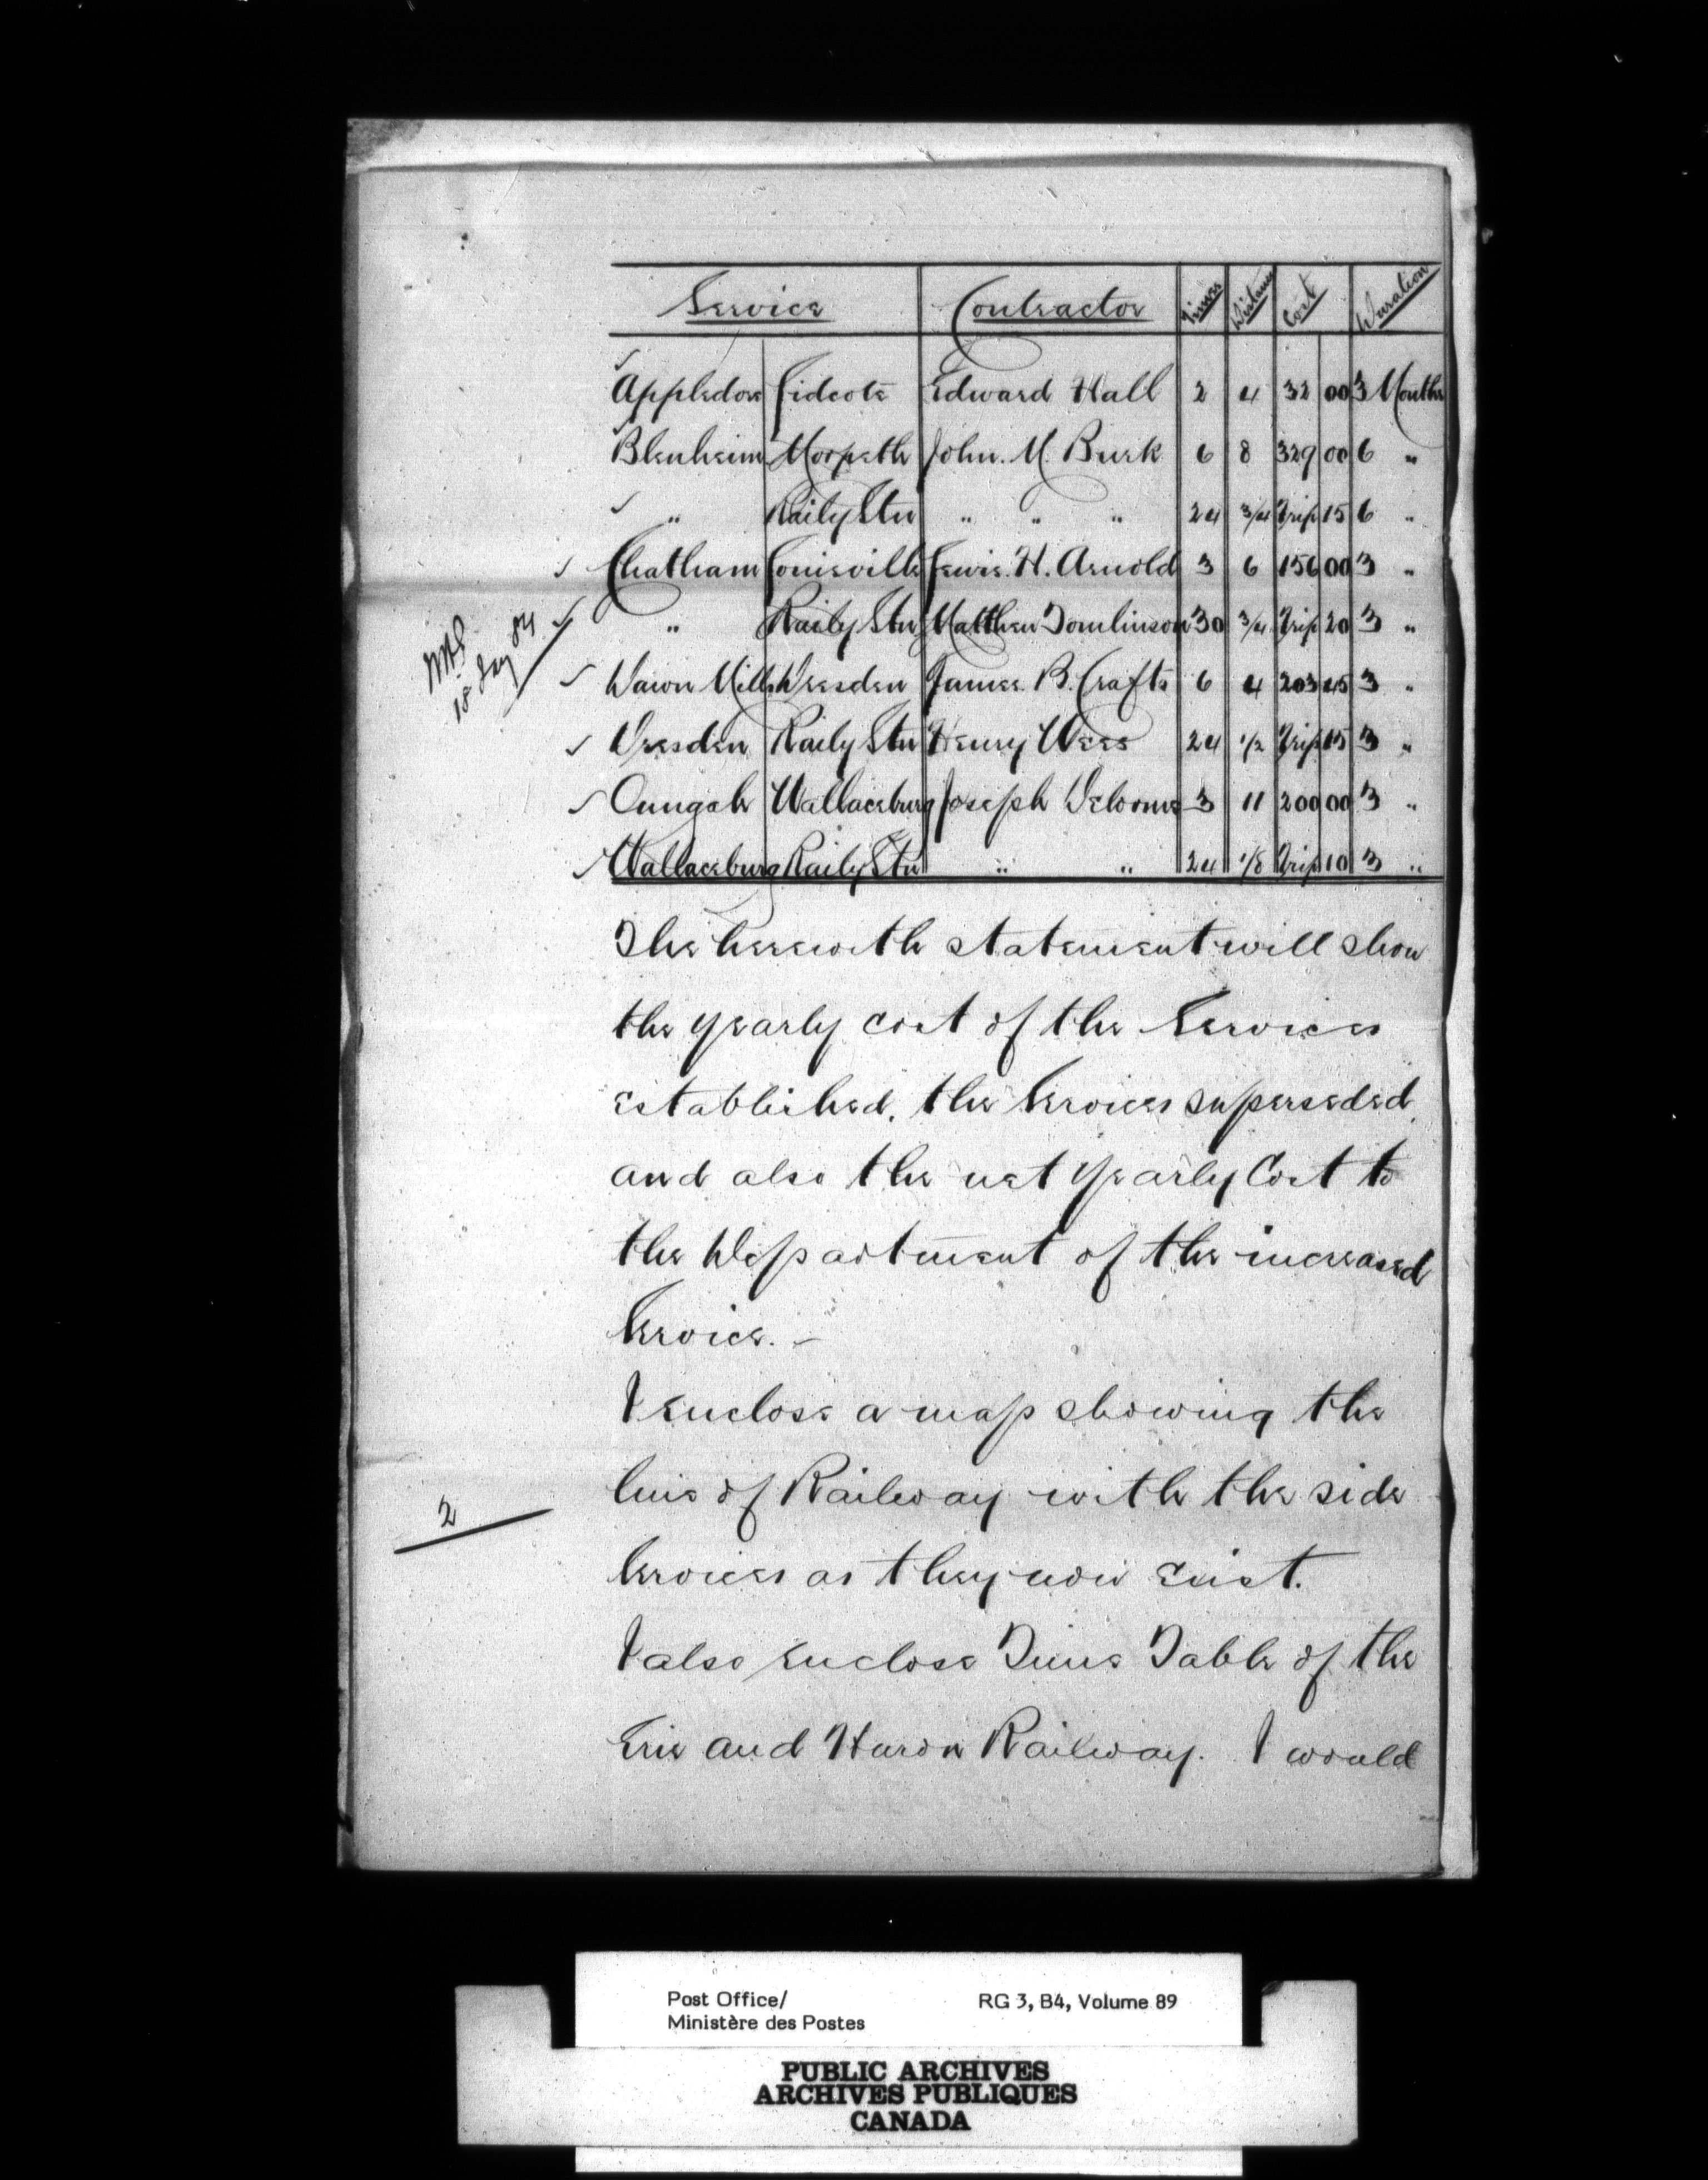 Service Contractor Times Distance Cost Duration
✓ Appledore Lidcote Edward Hall 2 4 32 00 3 Months
✓ Blenheim Morpeth John. M. Burk 6 8 329 00 6 "
✓ " Raily Stn " " " 24 3/4 Trip 15 6 "
✓ Chatham Louisville Lewis. H. Arnold 3 6 156 00 3 "
✓ " Raily Stn Matthew Tomlinson 30 3/4 Trip 20 3 "
18 84
✓ Dawn Mills Dresden James. B. Crafts 6 4 203 45 3 "
✓ Dresden Raily Stn Henry Wees 24 1/2 Trip 15 3 "
✓ Oungah Wallaceburg Joseph 3 11 200 00 3 "
✓ Wallaceburg Raily Stn " " 24 1/8 Trip 10 3 "
The herewith statement will show
the yearly cost of the Services
established, the Services superseded,
and also the net yearly Cost to
the Department of the increased
Service. –
I enclose a map showing the
line of Railway with the side
2
Services as they now exist.
I also enclose Time Table of the
Erie and Huron Railway. I would
Post Office/ RG 3, B4, Volume 89
Ministère des Postes
PUBLIC ARCHIVES
ARCHIVES PUBLIQUES
CANADA